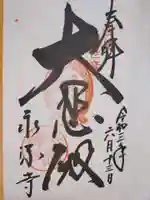 奉拝
令和三年
六月十三日
大悲殿
永源寺